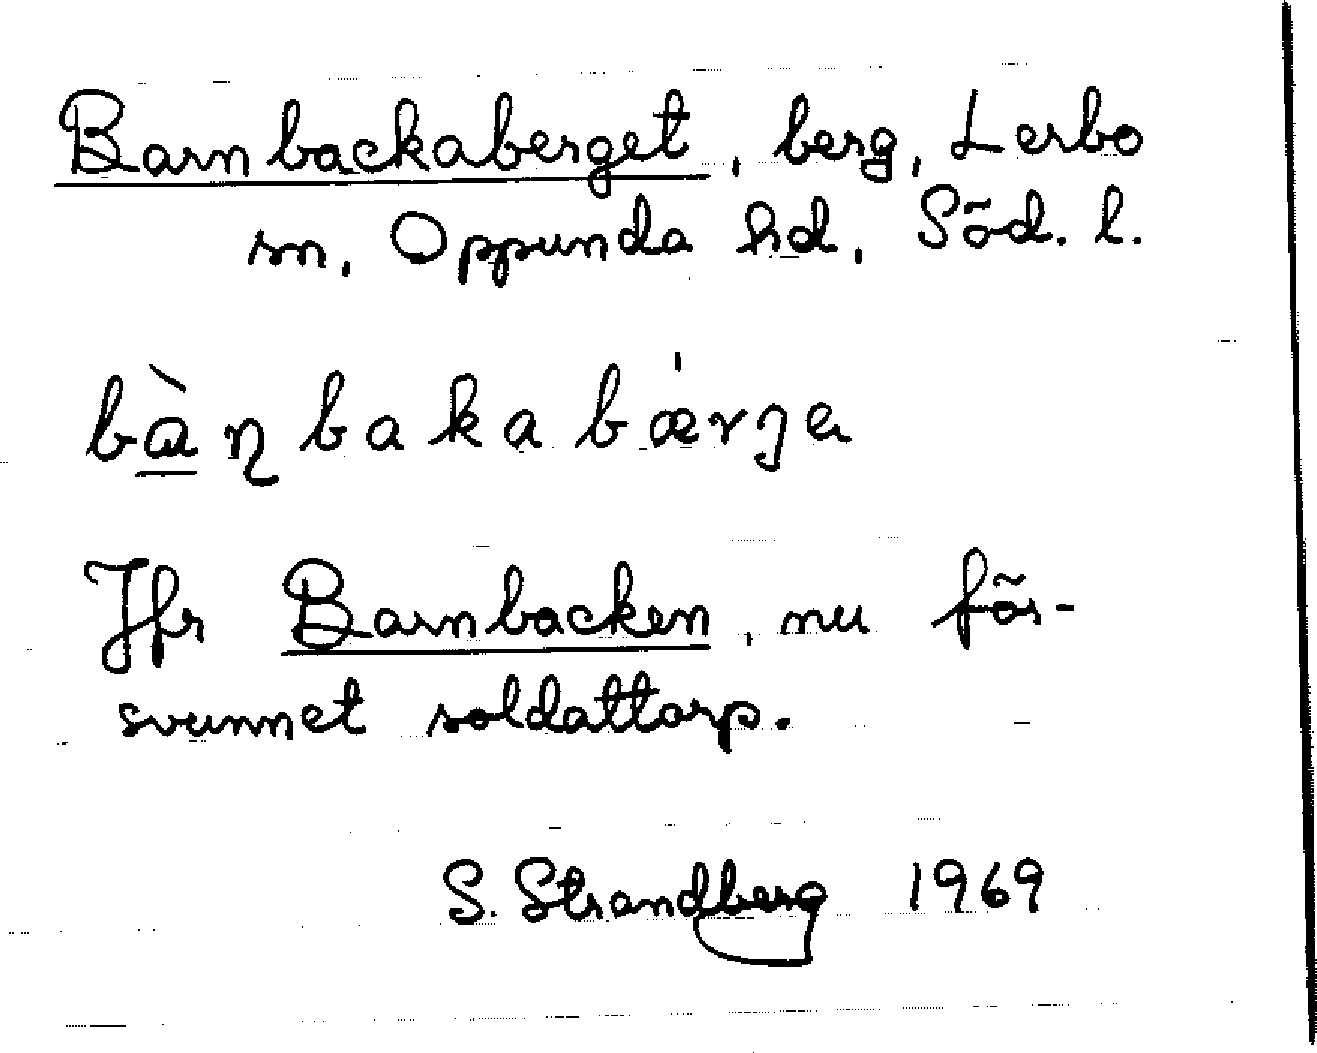 Barnbackaberget, berg, Lerbo
sn, Oppunda hd, Söd. l.
bàɳbakabǽrɡe
Jfr Barnbacken, nu för-
svunnet soldattorp.
S. Strandberg 1969